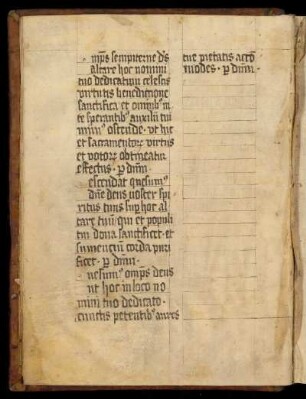 mp̄s sempiterne ds̄
altare hoc nomini
tuo dedicatum celestis
virtutis benedictione
sanctifica et omnibꝰ in
te sperantibꝰ auxilii tui
munꝰ ostende · ut hic
et sacramentoꝝ virtus
et votoꝝ obtineatur
effectus · p dn̄m ·
escendat quesumꝰ
dn̄e deus noster spi
ritus tuus suꝑ hoc al
tare tuū qui et populi
tui dona sanctificet · et
sumentiū corda puri
ficet · p dn̄m ·
uesumꝰ omp̄s deus
ut hoc in loco no
mini tuo dedicato ·
cunctis petentibꝰ aures
tue pietatis acco
modes · p dn̄m ·